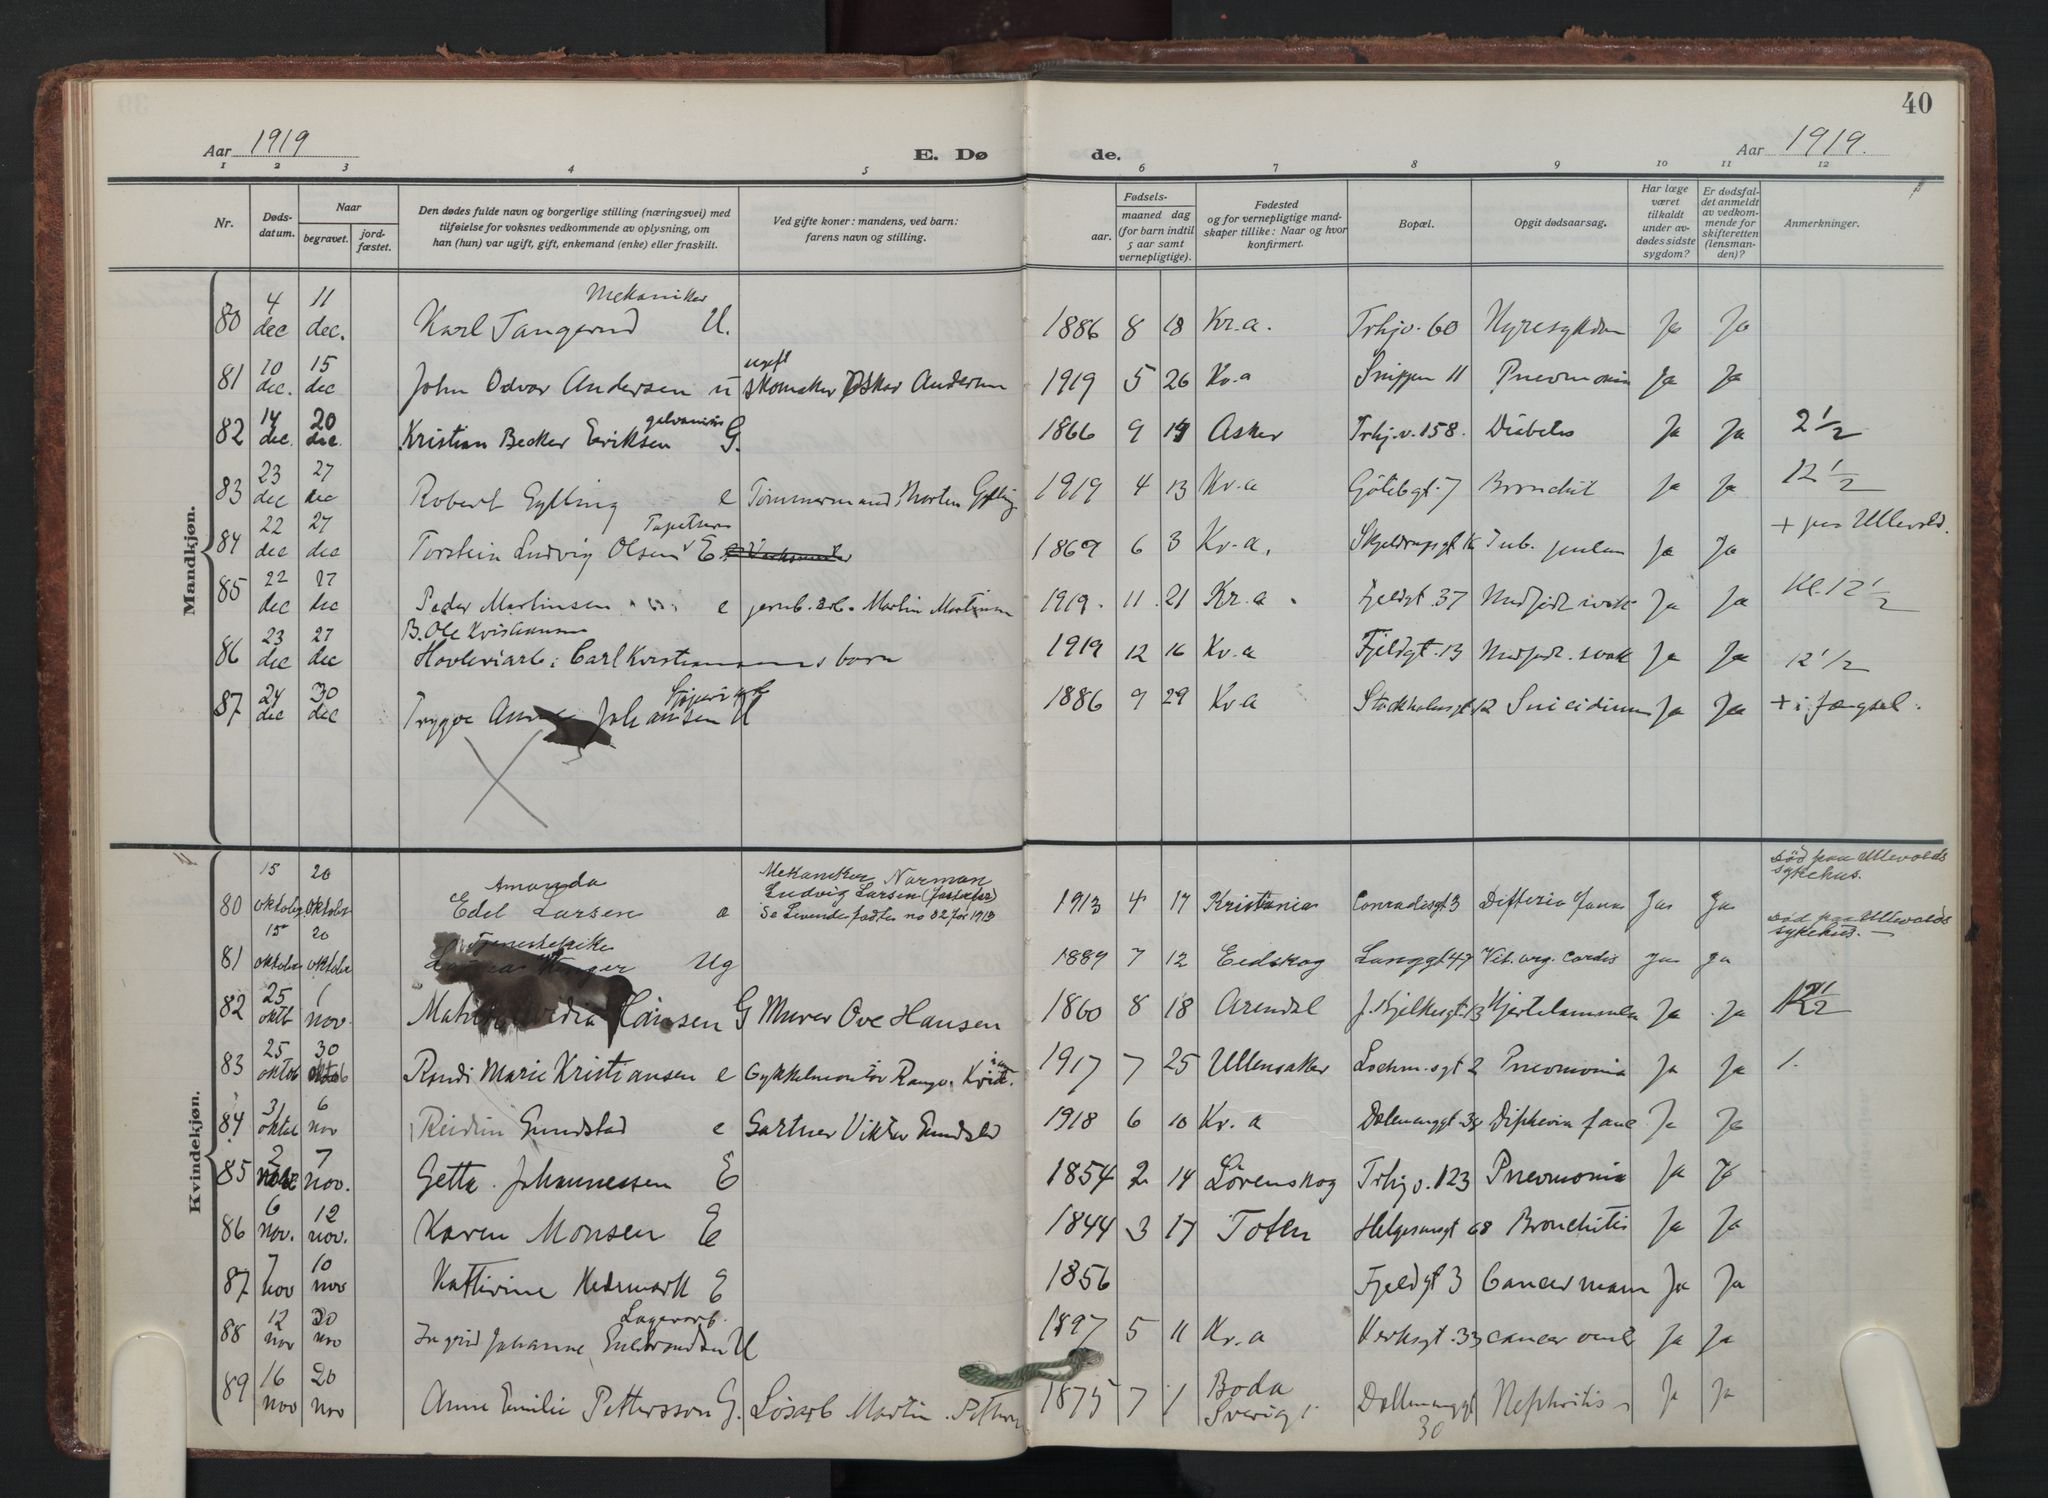 40
Aar 1919
E. Dø de.
Aar 1919.
1 2 3 4 5 6 7 8 9 10 11 12
Nr.
Døds-
datum.
Naar
begravet.
jord-
fæstet.
Den dødes fulde navn og borgerlige stilling (næringsvei) med
tilføielse for voksnes vedkommende av oplysning, om
han (hun) var ugift, gift, enkemand (enke) eller fraskilt.
Ved gifte koner: mandens, ved barn:
farens navn og stilling.
Fødsels-
aar.
maaned dag
(for barn indtil
5 aar samt
vernepligtige).
Fødested
og for vernepligtige mand-
skaper tillike: Naar og hvor
konfirmert.
Bopæl.
Opgit dødsaarsag.
Har læge
været
tilkaldt
under av-
dødes sidste
sygdom?
Er dødsfal-
det anmeldt
av vedkom-
mende for
skifteretten
(lensman-
den)?
Anmerkninger.
Mandkjøn.
4 11 Mekaniker
80 dec dec. Karl Tangerud U. 1886 8 18 Kr.a. Trhjv. 60 Nyresykdom Ja Ja
10 15 ugift
81 dec. dec John Odvar Andersen u skomaker Oskar Andersen 1919 5 26 Kr.a Snippen 11 Pneumonia Ja Ja
14 20
82 dec. dec. Kristian Becker Eriksen G. 1866 9 19 Asker Trhj.v. 158. Diabetes Ja Ja 2 1/2
23 27
83 dec dec Robert Gylling e Tømmermand Morten Gylling 1919 4 13 Kr.a Götebgt. 7 Bronchit Ja Ja 12 1/2
22 27
84 dec dec Torstein Ludvig Olsen E 1869 6 3 Kr.a. Skjeldrupsgt Tub. pulm Ja Ja + paa Ullevold.
22 27
85 dec dec Peder Martinsen e jernb. arb. Martin Martinsen 1919. 11 21 Kr.a Fjeldgt. 37 Medfødt svak Ja Ja Kl. 12 1/2
23 27 B. Ole Kristiansen
86 dec dec Høvleriarb. Carl Kristiansens barn 1919 12 16 Kr.a Fjeldgt. 13 Medfødt. svak Ja Ja 12 1/2
24 30
87 dec dec Trygve Johansen U 1886 9 29 Kr.a Stockholmsgt 12 Suicidium Ja Ja + i fængsel.
Kvindekjøn.
15 20 Amanda Mekaniker Norman død paa Ullevolds
80 oktober oktober Edel Larsen e Ludvig Larsen 1913 4 17 Kristiania Conradisgt 3 Difteria fauc Ja Ja sykehus.
Se Levendefødte no 32 for 1913
15 20 død paa Ullevolds
81 oktober oktober Ug 1889 7 12 Eidskog Langgt 47 Vit. org. cordis Ja Ja sykehus.
25 1
82 oktb nov. Hansen G Murer Ove Hansen 1860 8 18 Arendal J. Bjelkesgt. 13 Hjertelammelse Ja Ja
25 30
83 oktob oktob Randi Marie Kristiansen e Cykkelmontør 1917 7 25 Ullensaker Lochm.sgt 2 Pneumonia Ja Ja 1.
31 6
84 oktob nov Reidun Gundstad e Gartner Viktor Gundstad 1918 6 10 Kr.a Dælenenggt. Diphteria fauc Ja Ja
2 7
85 nov. Getta Johannessen E 1854 2 14 Lørenskog Trhjv. 123 Pneumonia Ja Ja
6 12
86 nov. nov. Karen Monsen E 1844 3 17 Toten Helgesensgt 68 Bronchitis Ja Ja
7 10
87 nov nov Kathrine Hedemark E 1856 Fjeldgt 3 Cancer mam Ja Ja
12 20 Lagerarb.
88 nov nov Ingrid Johanne Enebrandsen U 1897 5 11 Kr.a Verksgt. 33 Cancer Ja Ja
16 20
89 nov nov Anne Emilie Pettersson G. Løsarb Martin Petterss 1875 7 1 Boda Sverige Dællenenggt 30 Nephritis Ja Ja